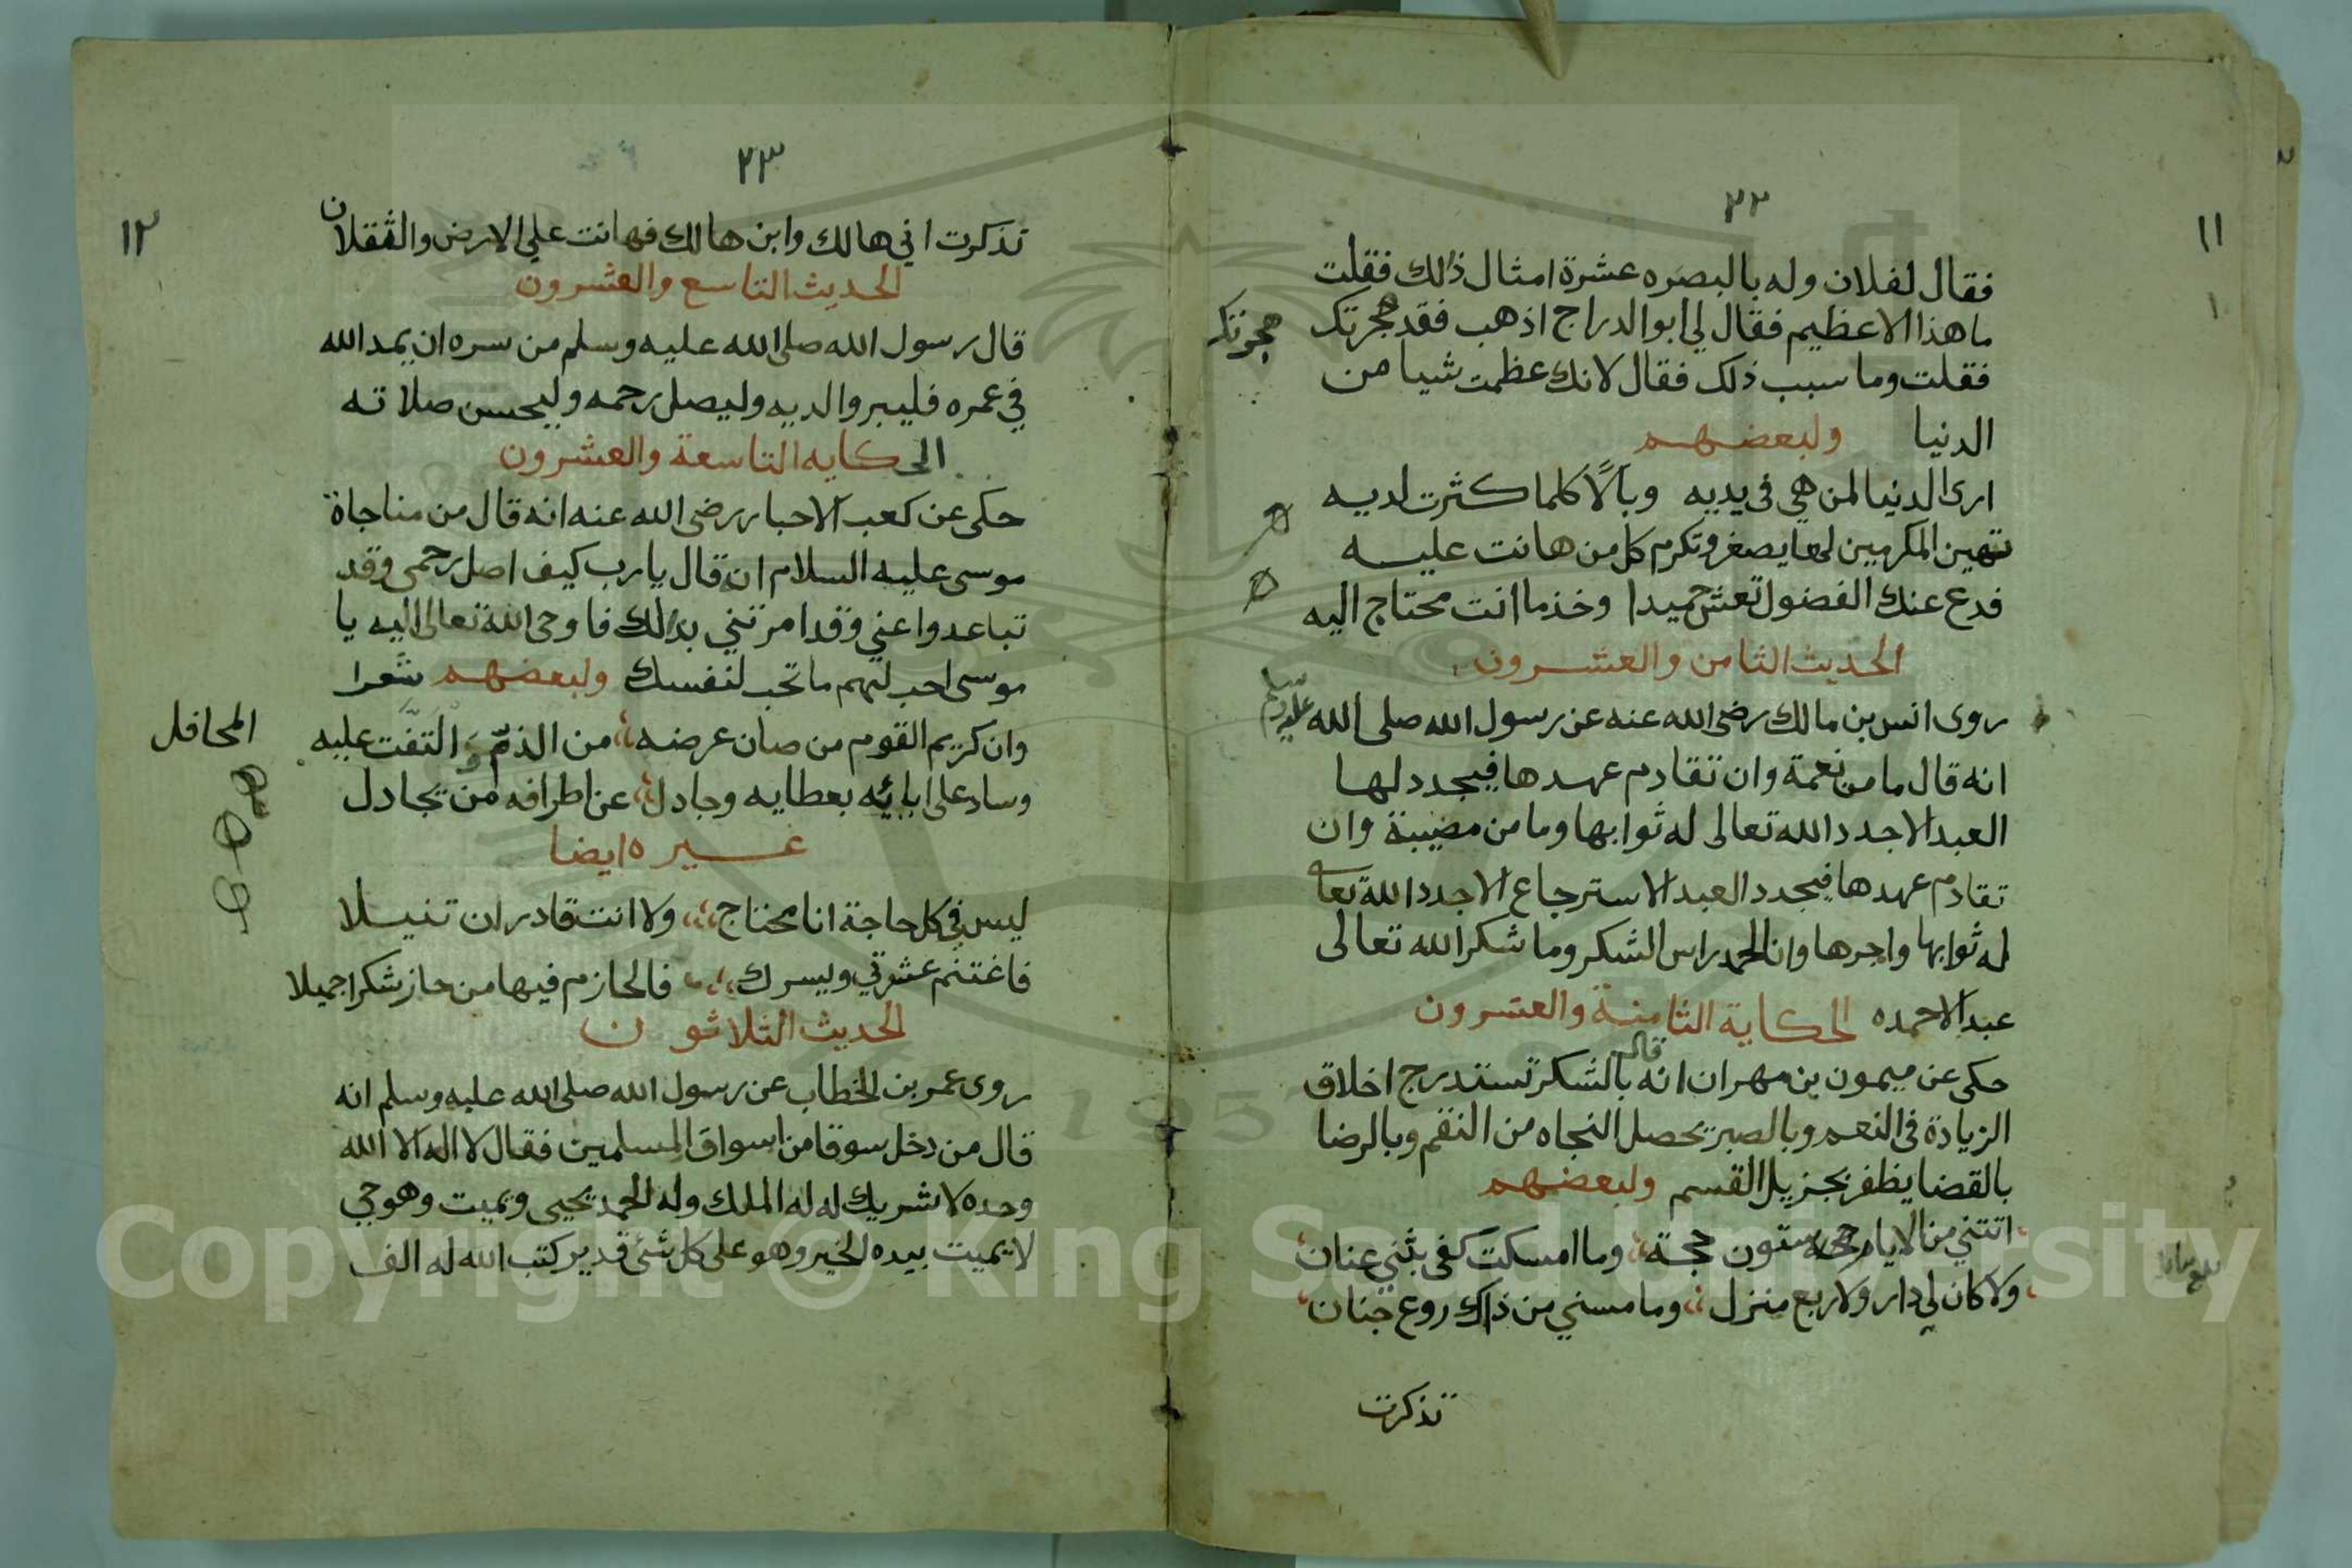 ٢٢
١١
فقال لفلان وله بالبصره عشرة امثال ذلك فقلت
ما هذا الا عظيم فقال لي ابو الدراج اذهب فقد هجرتك
هجرتك
فقلت وما سبب ذلك فقال لانك عظمت شيا من
الدنيا ولبعضهم
ارى الدنيا لمن هي في يديه وبالًا كلما كثرت لديه
تهين المكرمين لها يصغر وتكرم كل من هانت عليه
فدع عنك الفضول تعش حميدا وخذ ما انت محتاج اليه
الحديث الثامن والعشرون
روى انس بن مالك رضى الله عنه عن رسول الله صلى الله عليه وسلم
انه قال ما من نعمة وان تقادم عهدها فيجدد لها
العبد الا جدد الله تعالى له ثوابها وما من مصيبة وان
تقادم عهدها فيجدد العبد الاسترجاع الا جدد الله تعا
له ثوابها واجرها وان الحمد راس الشكر وما شكر الله تعالى
عبد الا حمده الحكاية الثامنة والعشرون
حكى عن ميمون بن مهران انه قال بالشكر تستدرج اخلاق
الزيادة فى النعم وبالصبر يحصل النجاه من النقم وبالرضا
بالقضا يظفر بجزيل القسم ولبعضهم
اتتني من الايام ستون حجة وما امسكت كفى بثني عنان
ولا كان لي دار ولا ربع منزل وما مسني من ذاك روع جنان
تذكرت
٢٣
١٢
تذكرت اني هالك وابن هالك فهانت علي الارض والثقلان
الحديث التاسع والعشرون
قال رسول الله صلى الله عليه وسلم من سره ان يمد الله
في عمره فليبر والديه وليصل رحمه وليحسن صلاته
الحكايه التاسعة والعشرون
حكى عن كعب الاحبار رضى الله عنه انه قال من مناجاة
موسى عليه السلام انه قال يا رب كيف اصل رحمى وقد
تباعدوا عني وقد امرتني بذلك فاوحى الله تعالى اليه يا
موسى احب لهم ما تحب لنفسك ولبعضهم شعرا
وان كريم القوم من صان عرضه من الذم والتفت عليه
المحافل
وساد على ابائه بعطايه وجادل عن اطرافه من يجادل
غيره ايضا
ليس في كل حاجة انا محتاج ولا انت قادر ان تنيلا
فاغتنم عشرتي ويسرك فالحازم فيها من حاز شكرا جميلا
الحديث الثلاثون
روى عمر بن الخطاب عن رسول الله صلى الله عليه وسلم انه
قال من دخل سوقا من اسواق المسلمين فقال لا اله الا الله
وحده لا شريك له له الملك وله الحمد يحيى ويميت وهو حي
لا يميت بيده الخير وهو على كل شئ قدير كتب الله له الف
Copyright © King Saud University
1957